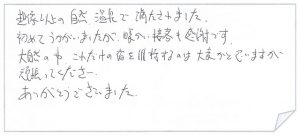 想像以上の自然 温泉で満たされました。
初めてうかがいましたが、暖かい接客も感謝です。
大自然の中 これだけの宿を維持するのは大変かと思いますが
頑張ってください。
ありがとうございました。